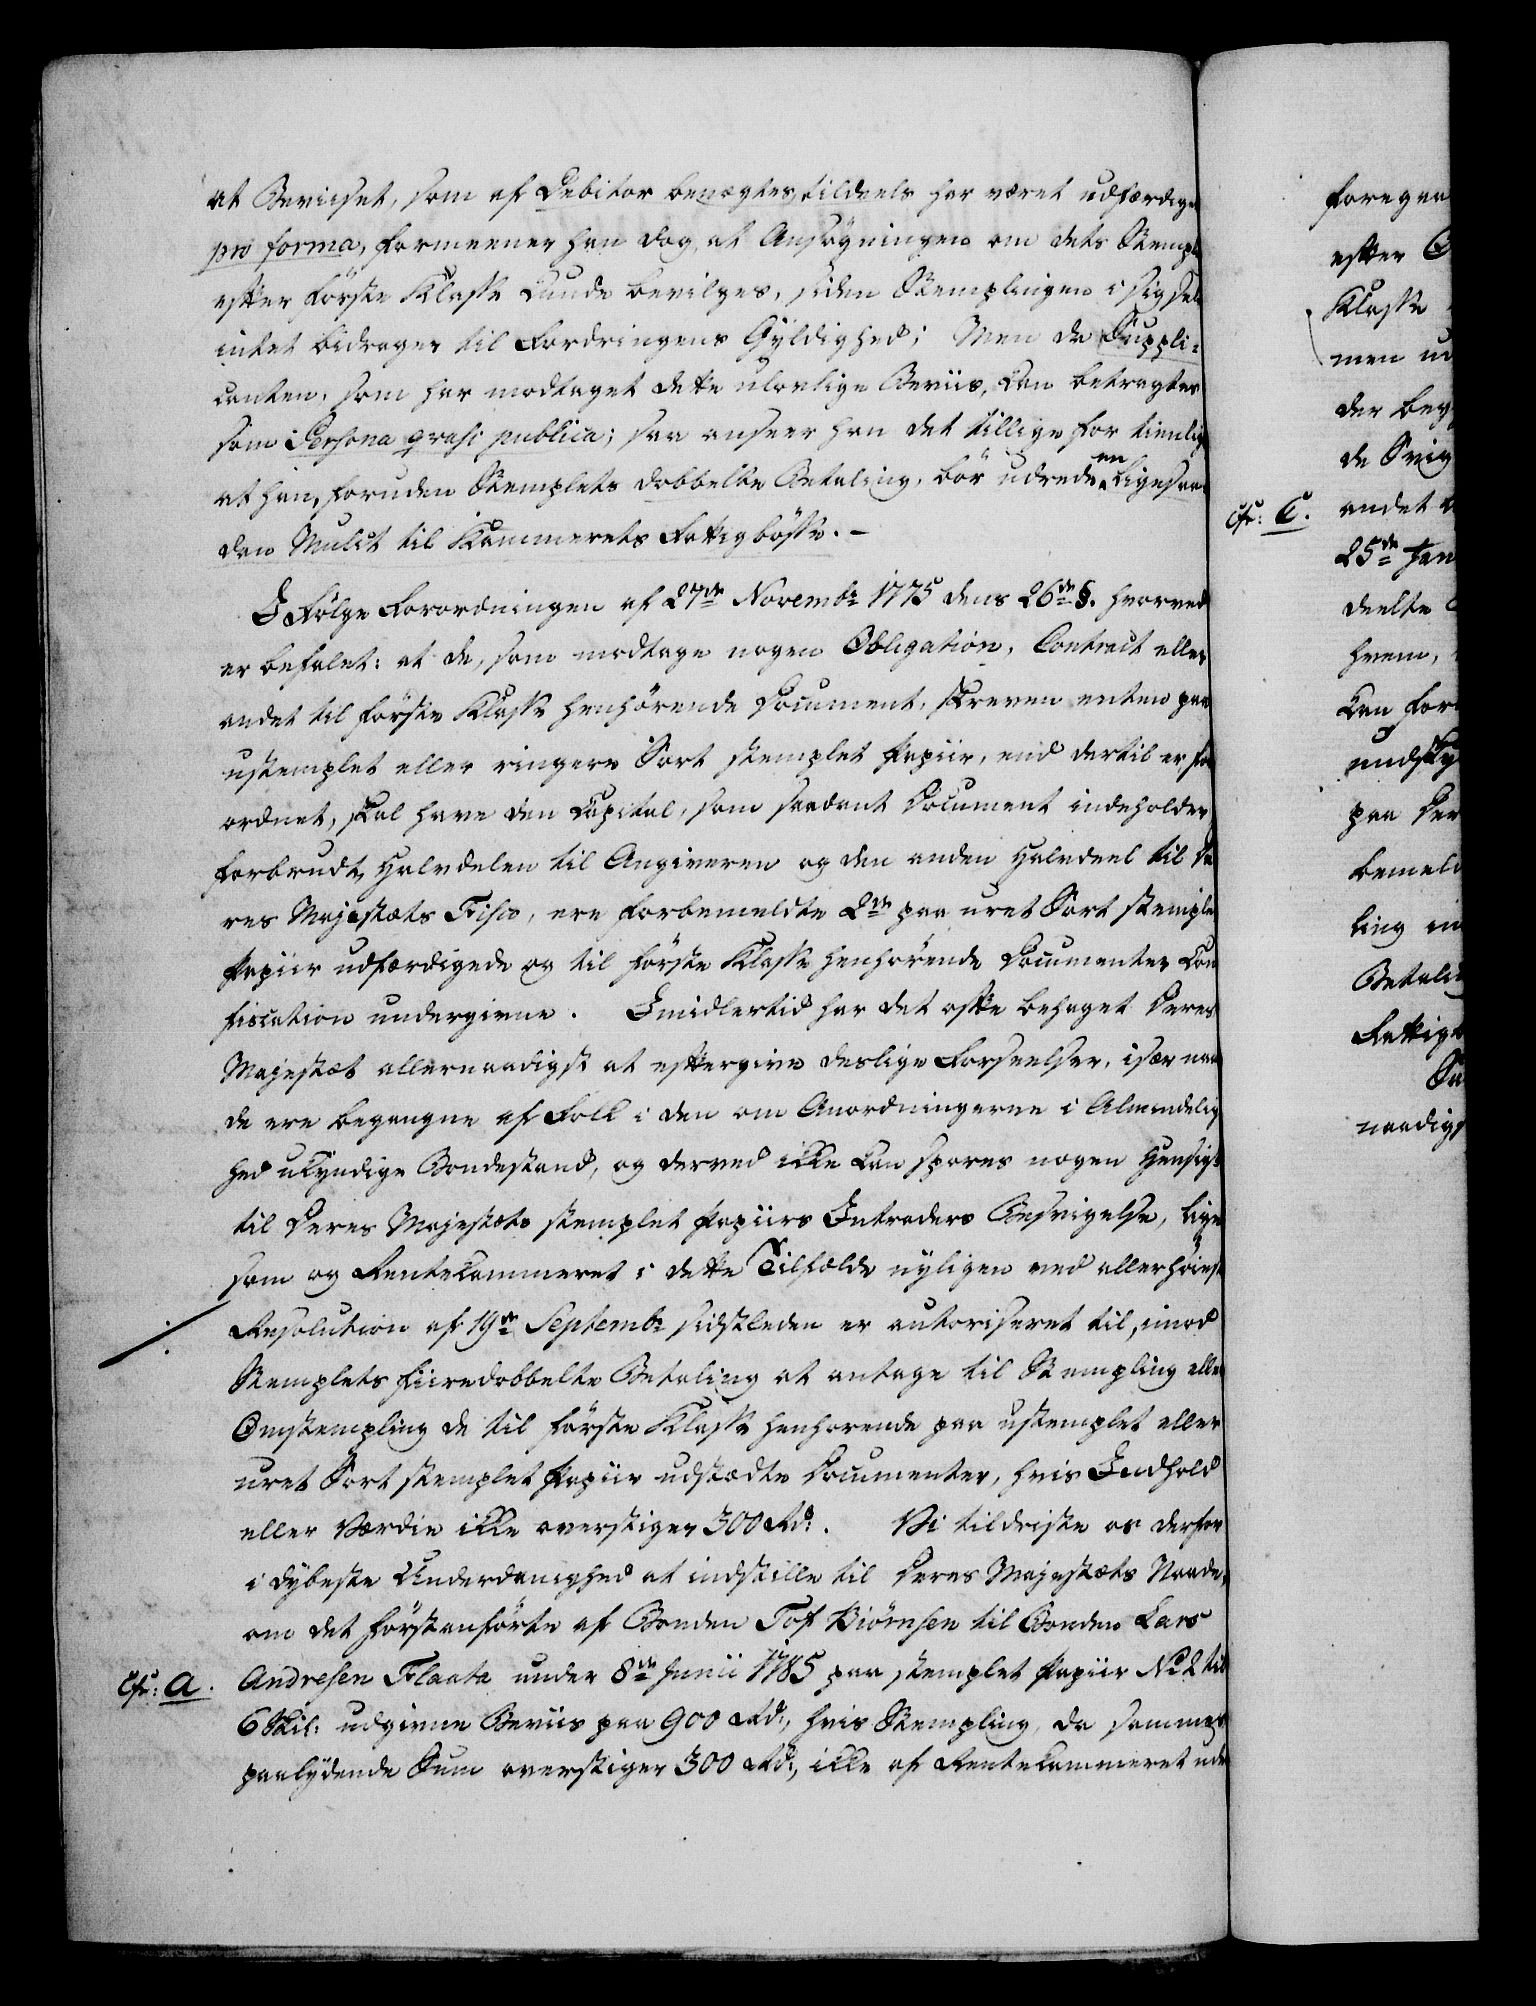 at Beviiset, som af Debitor benægtes, tildeels har været udfærdige
pro forma, formeener han dog, at Ansøgningen om dets Stempl
efter første Klasse kunde bevilges, siden Stemplingen i sig sel
intet bidrager til Fordringens Gyldighed; Men da Suppli:
canten, som har modtaget dette ulovlige Beviis, kan betragtes
som Persona qvasi publica; saa anseer han det tillige for tienlig
at han, foruden Stemplets dobbelte Betaling, bør udrede en Ligesaa
dan Mulct til Kammerets Fattigbøsse. -
I Følge Forordningen af 27de Novembr 1775 dens 26de §. hvorved
er befalet: at de, som modtage nogen Obligation, Contract eller
andet til første Klasse henhørende Document, skreven enten paa
ustemplet eller ringere Sort stemplet Papiir, end dertil er for
ordnet, skal have den Capital, som saadant Document indeholder
forbrudt, Halvdelen til Angiveren og den anden Halvdeel til De
res Majestæts Fisco, ere forbemeldte 2de paa uret Sort stemple
Papiir udfærdigede og til første Klasse henhørende Documenter Con
fiscation undergivne. Imidlertid har det ofte behaget Deres
Majestæt allernaadigst at eftergive deslige Forseelser, især naar
de ere begangne af Folk i den om Anordningerne i Almindelig
hed ukyndige Bondestand, og derved ikke kan spores nogen Hensigt
til Deres Majestæts stemplet Papiirs Intraders Besvigelse, lige
som og Rentekammeret i dette Tilfælde nyligen ved allerhøiest
Resolution af 19de Septembr sidstleden er autoriseret til, imod
Stemplets fiiredobbelte Betaling at antage til Stempling elle
Omstempling de til første Klasse henhørende paa ustemplet eller
uret Sort stemplet Papiir udstædte Documenter, hvis Indhold
eller Værdie ikke overstiger 300 Rd:. Vi tildriste os derfor
i dybeste Underdanighed at indstille til Deres Majestæts Naade,
om det førstanførte af Bonden Tof Biørnsen til Bonden Lars
Cfr: A. Andresen Flaata under 8de Junii 1785 paa stemplet Papiir No 2 til
6 Skil: udgivne Beviis paa 900 Rd:, hvis Stempling, da sammes
paalydende Sum overstiger 300 Rd:, ikke af Rentekammeret uden
foregaa
efter
Klasse
men ud
der beg
de Svig
Cfr: C. andet
25de Jan
deelte
hvem,
kan for
undsky
paa Der
bemeld
ling in
Betalin
Fattig
Sa
naadigs